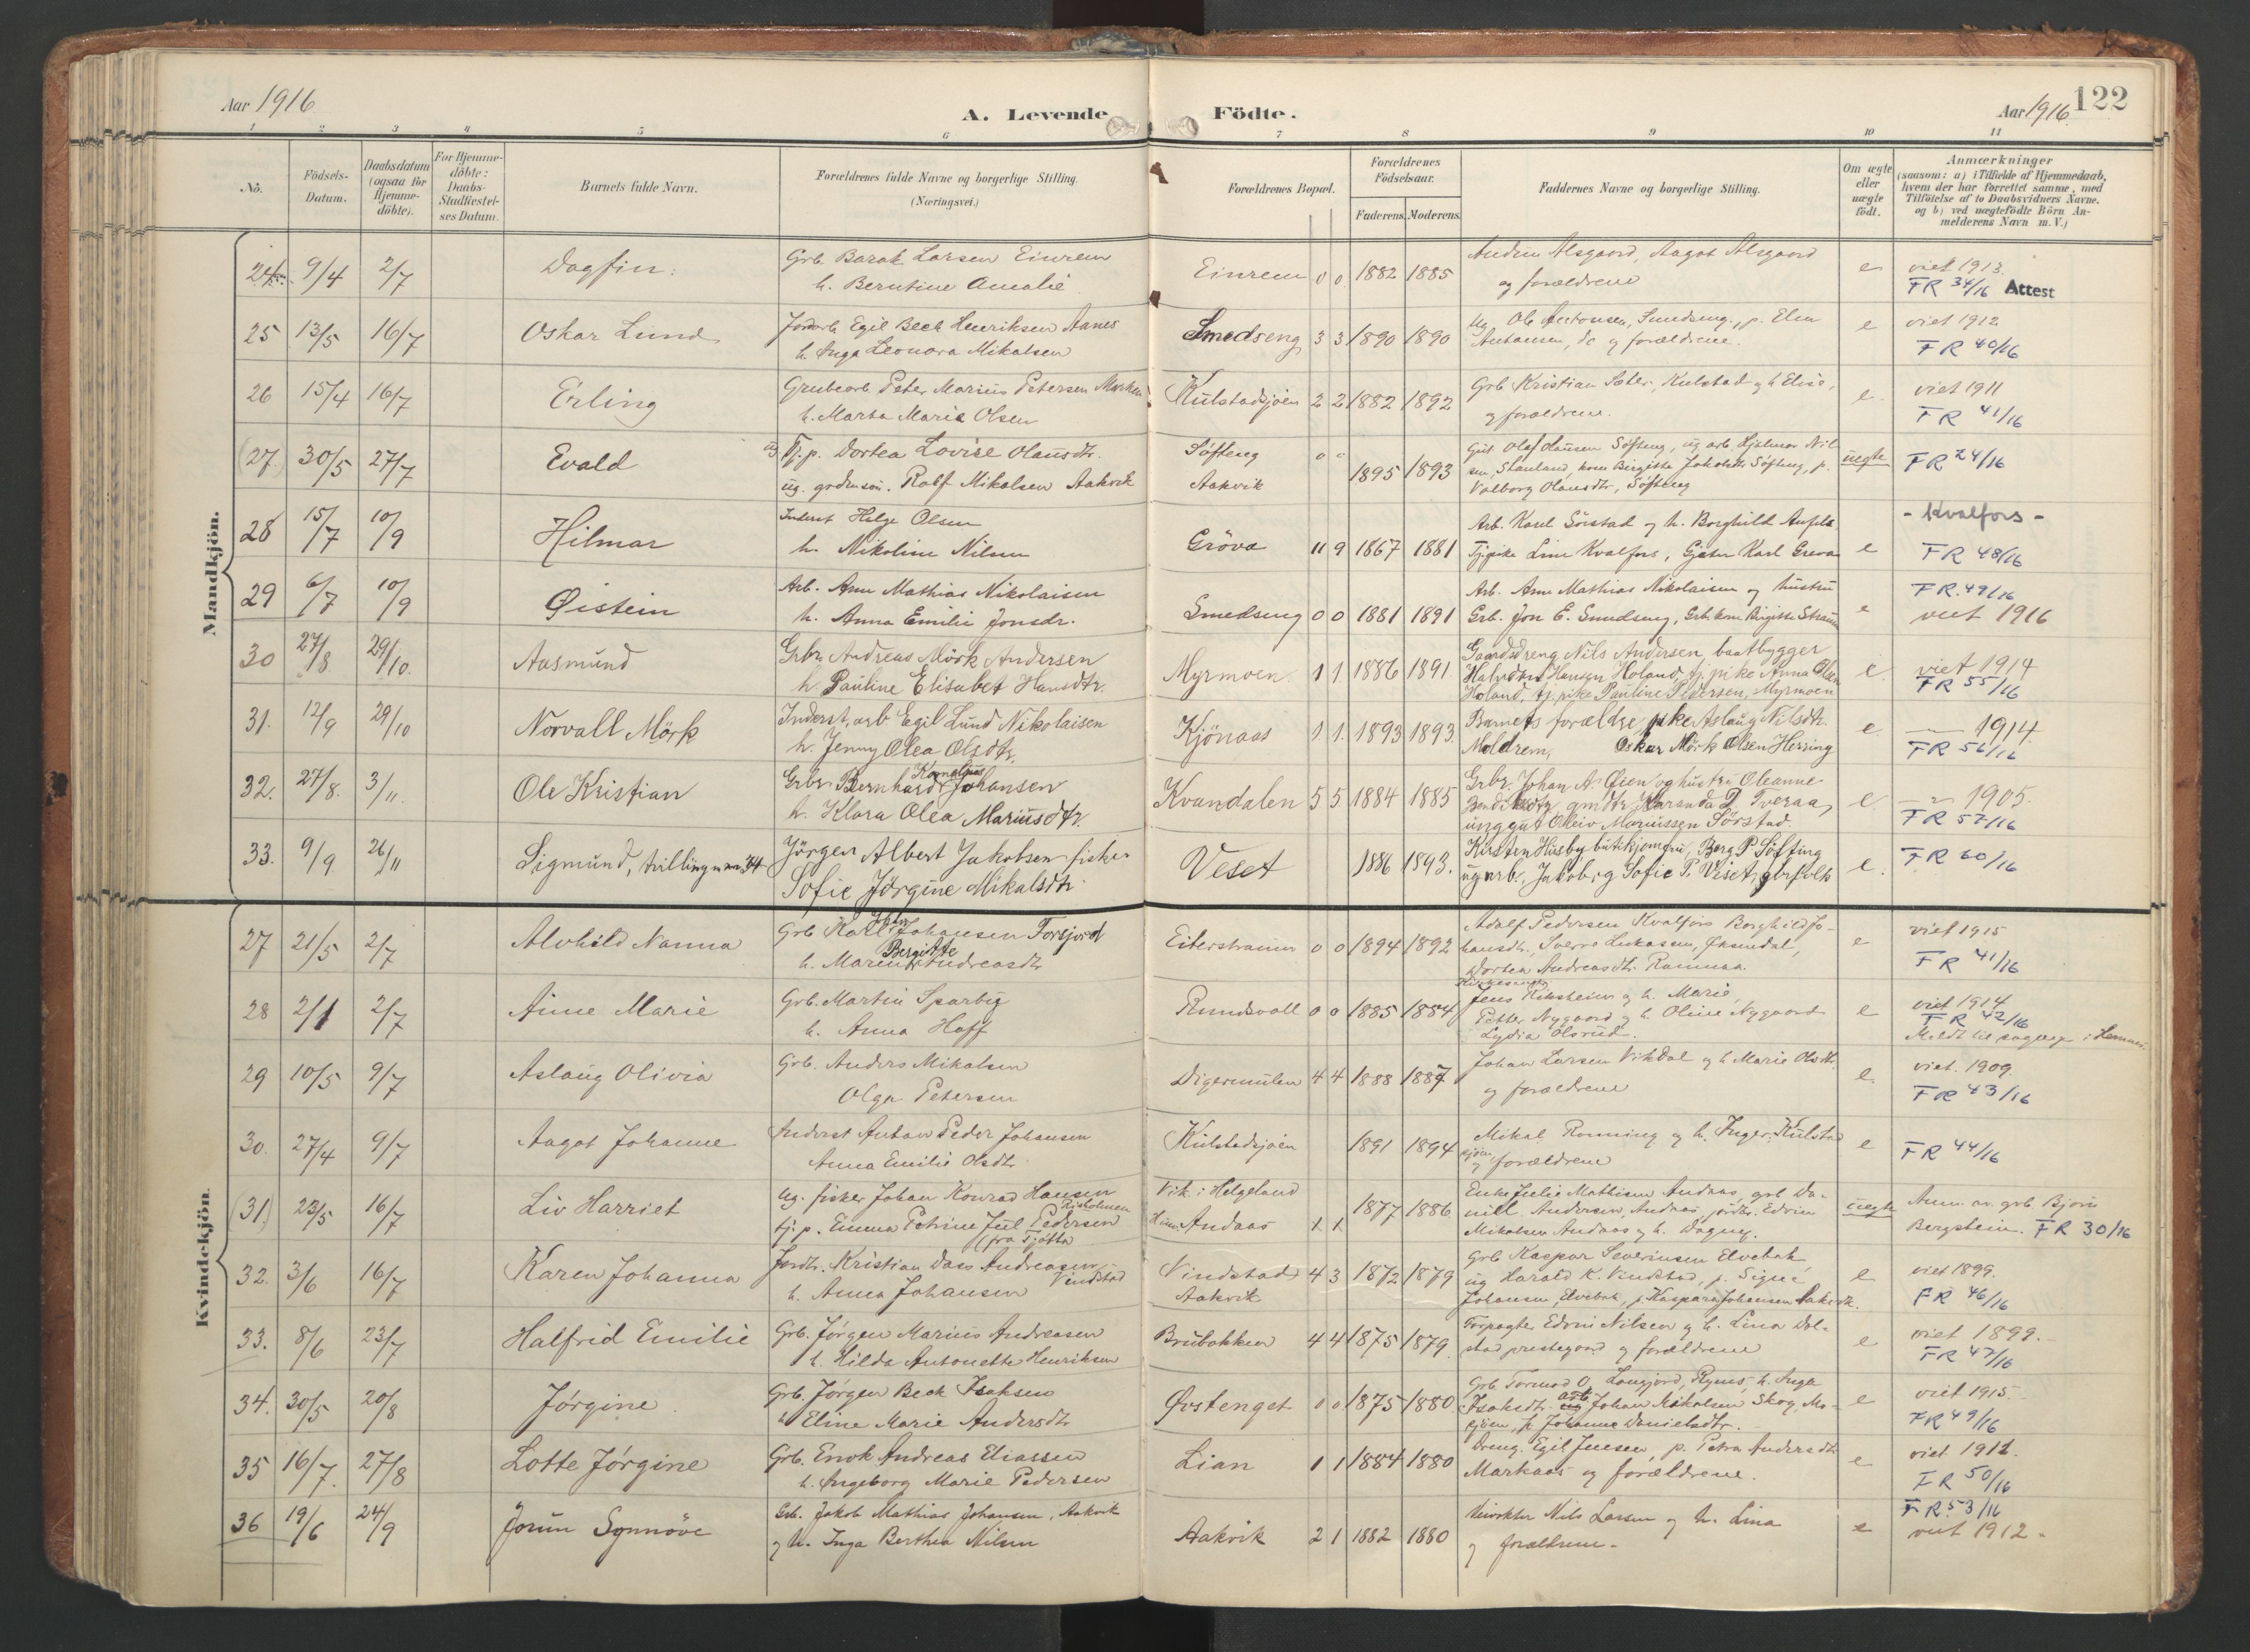 Aar 1916
A. Levende Födte.
Aar 1916
122
1 2 3 4 5 6 7 8 9 10 11
No.
Födsels-Datum.
Daabsdatum (ogsaa for Hjemme-döbte).
For Hjemme-döbte: Daabs-Stadfæstel-ses Datum.
Barnets fulde Navn.
Forældrenes fulde Navne og borgerlige Stilling. (Næringsvei.)
Forældrenes Bopæl.
Forældrenes Födselsaar.
Faderens. Moderens.
Faddernes Navne og borgerlige Stilling.
Om ægte eller uægte födt.
Anmærkninger
(saasom: a) i Tilfælde af Hjemmedaab, hvem der har forrettet samme, med Tilföielse af to Daabsvidners Navne, og b) ved uægtefödte Börn An-melderens Navn m. V.)
Mandkjön.
24 9/4 2/7 Dagfin. Grb. Barak Larsen Einrem Einrem 0 0 1882 1885 Alsgaard, Aagot Alsgaard e viet 1913.
h. Berntine Amalie og forældrene FR 34/16 Attest
25 13/5 16/7 Oskar Lund Jordarb. Egil Beck Henriksen Aanes Smedseng 3 3 1890 1890 Ug. Ole Antonsen, Smedseng, p. Elen e viet 1912
h. Inga Leonora Mikalsen Antonsen, do og forældrene. FR 40/16
26 15/4 16/7 Erling Grubearb. Peter Marius Petersen Kulstadsjøen 2 2 1882 1892 Grb Kristian Sæter, Kulstad og h Elise, e. viet 1911
h. Marta Maria Olsen og forældrene. FR 41/16
(27.) 30/5 27/7 Evald ug Tj. p. Dortea Lovise Olausdtr. Søfteng 0 0 1895 1893 Gut Olaf Hansen Söfteng, ug arb. Hjalmar Nil- uegte FR 24/16
ug. grdmsøn. Rolf Mikalsen Aakvik Aakvik sen, kone Birgitte Jakobsdtr Söfteng, p.
Valborg Olausdtr, Söfteng
28 15/7 10/9 Hilmar Inderst Helge Olsen Gröva 11 9 1867 1881 Arb. Karl Sörstad og h. Borghild e - Kvalfors -
h. Nikoline Nilsen Tjpike Line Kvalfors, Gjeter Karl Greva FR 48/16
29 6/7 10/9 Øistein Arb. Arne Mathias Nikolaisen Smedseng 0 0 1881 1891 Arb. Arne Mathias Nikolaisen og hustru e FR. 49/16
h. Anna Emilie Jonsdr. Grb. Jon E. Smedseng, Grb.kone Birgitte viet 1916
30 27/8 29/10. Aasmund Grbr. Andreas Mörk Andersen Myrmoen. 1 1 1886 1891 Gaardsdreng Nils Andersen, baatbygger e. viet 1914
h. Pauline Elisabet Hansdtr. Halvdan Hansen Holand, tj. pike Anna Olsen FR 55/16
Holand, tj. pike Pauline Pedersen, Myrmoen
31. 12/9 29/10 Norvall Mörk Inderst, arb Egil Lund Nikolaisen Kjönaas 1 1. 1893 1893. Barnets forældre, pike Aslaug Nilsdtr. e. — 1914.
h. Jenny Olea Olsdtr. Moldrem, Oskar Mörk Olsen Herring FR 56/16
32. 27/8. 3/11. Ole Kristian Grbr. Bernhard Kornelius Johansen Kvandalen 5 5 1884 1885 Grbr. Johan A. Øien og hustru Oleanne e — 1905.
h. Klara Olea Mariusdtr. Bendiksdtr, gmdtr. D. Tveraa, FR 57/16
unggut Oleiv Mariussen Sörstad.
33. 9/9 26/11 Sigmund, tvilling m nr 34 Jörgen Albert Jakobsen fisker Veset 1886 1893. Kirsten Husby butikjomfru, Berg P. Söfting e. FR 60/16
Sofie Jörgine Mikalsdtr. ug arb, Jakob og Sofie P. Veset, gbrfolk
Kvindekjön.
27 21/5 2/7 Alvhild Nanna Grb Karl John Johansen Forsjord Eiterstraum 0 0 1894 1892 Adolf Pedersen Kvalfors Borghild Jo- e viet 1915
h. Maren Bergitte Andreasdtr hansdtr, Sverre Lukassen, Øksendal, FR 41/16
Dortea Andreasdtr. Ramnaa.
28 2/1 2/7 Anne Marie Grb. Martin Sparbig Rundvoll 0 0 1885 1884 Jens og h. Marie, e viet 1914
h. Anna Hoff Petter Nygaard og h. Oline Nygaard FR 42/16
Lydia Olsrud. Meldt til i
29 10/5 9/7 Aslaug Olivia Grb. Anders Mikalsen Digermulen 4 4 1888 1887 Johan Larsen Vikdal og h Marie Olsdtr. e. viet. 1909.
Olga Petersen og forældrene FR 43/16
30. 27/4 9/7 Aagot Johanne Inderst Anton Peder Johansen Kulstadsjøen 1891 1894 Mikal Ronning og h. Inger, Kulstad e FR 44/16
Anna Emilie Olsdtr. sjøen, og forældrene
(31) 23/5 16/7 Liv Harriet Ug. fisker Johan Konrad Hansen Vik i Helgeland 1877 1886 Enke Julie Mathisen Andaas, grb Da- uegte Anm. av grb Bjørn
tj. p. Emma Petrine Juul Pedersen Risholmen (fra Tjøtta Andaas 1. 1. niel Andersen, Andaas, Edvin Bergstein. FR 30/16
Mikalsen Andaas og h. Dagny.
32. 3/6 16/7 Karen Johanna Jordbr. Kristian Dass Andreasen Vindstad Vindstad 4 3 1872 1879 Grb Kaspar Severinsen Elvebak e viet 1899.
h. Anna Johansen Aakvik ug Harald K. Vindstad, p. Signe FR 46/16
Johansen, Elvebak, p. Kaspara Johansen
33. 8/6 23/7 Halfrid Emilie Grb. Jørgen Marius Andreasen Brubakken 4 4 1875 1879 Forpagter Edvin Nilsen og h. Lina Dol- e viet 1899.
h. Hilda Antonette Henriksen stad prestegaard og forældrene FR 47/16
34. 30/5 20/8 Jørgine Grb. Jørgen Beck Isaksen Øvstenget 0 0 1875 1880 Grb. Tormod O. Langjord, h. Inga e viet 1915.
h Eline Marie Andersdtr Isaksdtr. arb Johan Mikalsen Skog, Mo- FR 49/16
sjøen, p. Johanne Danielsdtr.
35 16/7. 27/8 Lotte Jørgine Grb. Enok Andreas Eliassen Lian 1 1 1884 1880 Dreng. Egil Jensen, p. Petra Andersdtr e viet 1912.
h. Ingeborg Marie Pedersen Markaas og forældrene. FR 50/16
36 19/6 24/9 Jorun Synnöve Grb. Jakob Mathias Johansen, Aakvik Aakvik 2 1 1882 1880 Nils Larsen og h. Lina e FR. 53/16
og h. Inga Berthea Nilsen og forældrene. viet 1912.